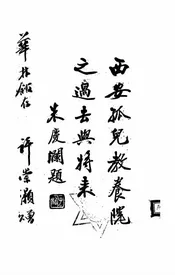 西安孤兒教養院
之過去與將來
朱慶瀾題
華林饭任
許崇灝贈